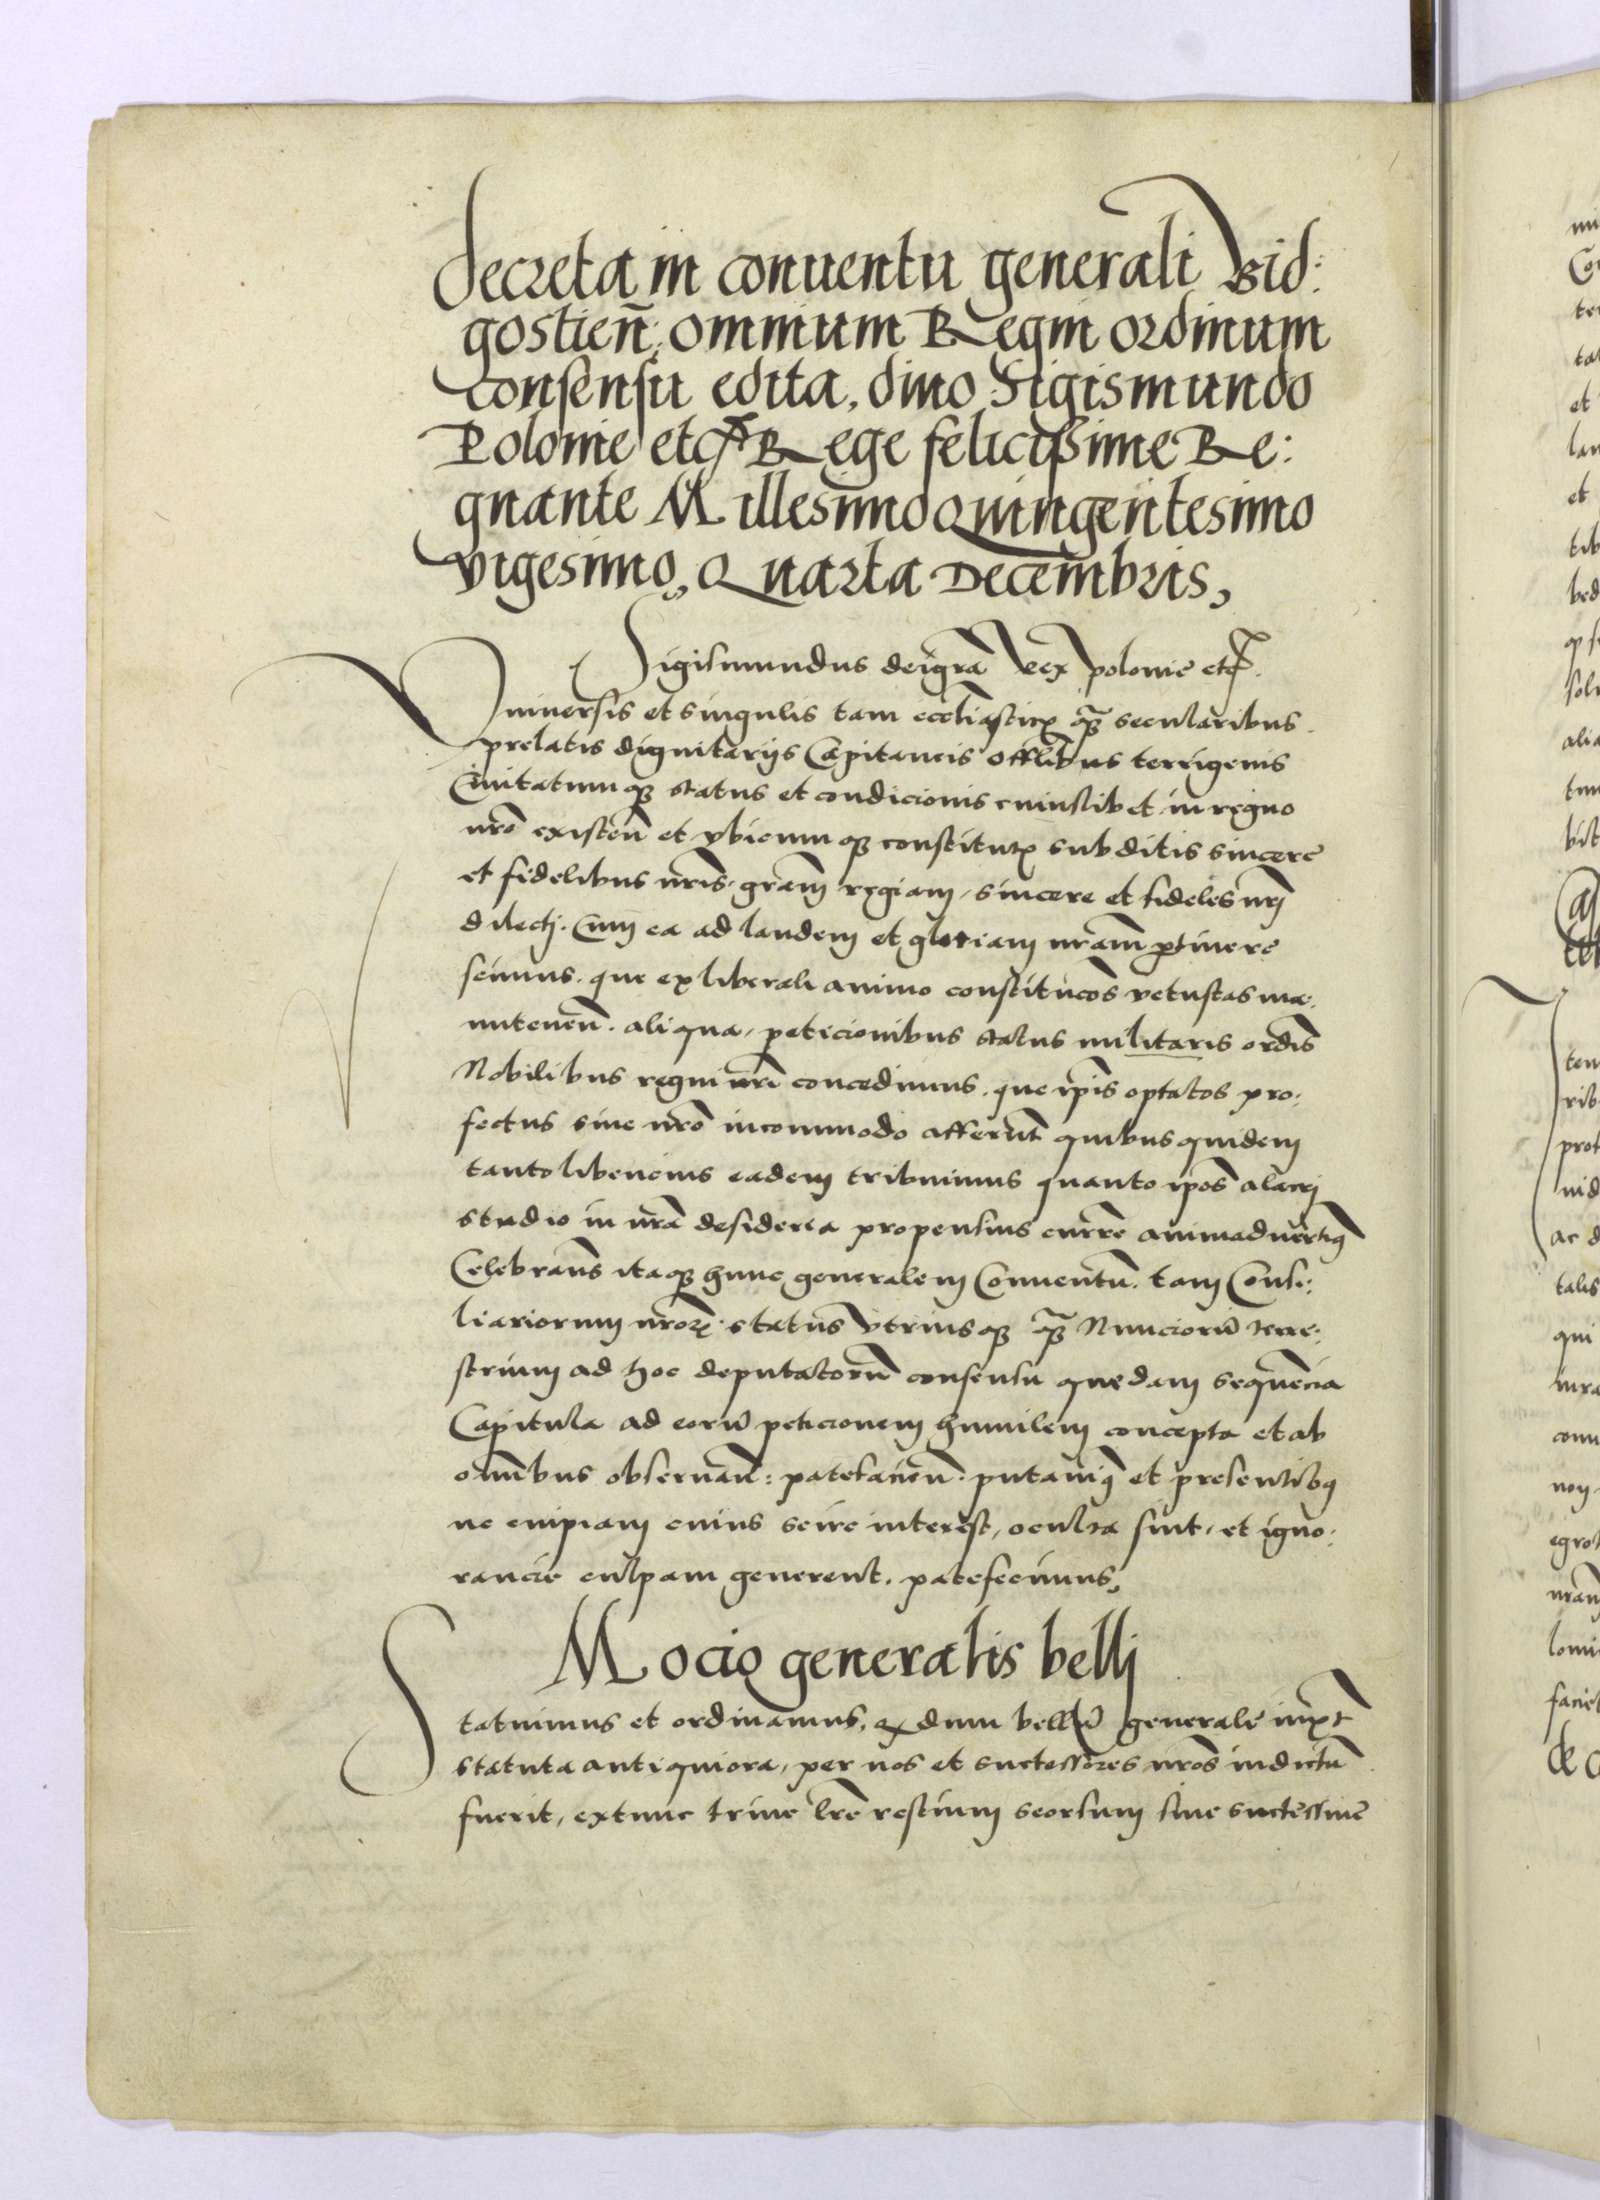 decreta in conuentu generali Bid:
gostien̄: omnium Regni ordinum
consensu edita, diuo Sigismundo
Polonie etc̃ Rege felicissime Re:
gnante Millesimo Quingentesimo
vigesimo, Quarta Decembris,
Sigismundus dei gr̃a Rex polonie etc̃.
Vniuersis et singulis tam eccl̃iasticꝭ q̃ꝫ secularibus
prelatis dignitarijs Capitaneis offl̃ibus terrigenis
Ciuitatum qꝫ status et condicionis cuiuslibet in regno
nr̃o existen̄ et vbicum qꝫ constitutꝭ subditis sincere
et fidelibus nr̃is. gr̃am regiam, sincere et fideles nr̃j
dilectj. Cum ea ad laudem et gloriam nr̃am ꝑtinere
scimus. que ex liberali animo constituc̃os vetustas ma:
nuteneñ. aliqua, peticionibus status militaris ordĩs
Nobilibus regni nr̃i concedimus. que ip̃is optatos pro:
fectus sine nr̃o incommodo afferunt̃ quibus quidem
tanto libencius eadem tribuimus quanto ip̃os alacrj
studio in nr̃a desideria propensius currẽ animaduertimꝯ
Celebrañs itaqꝫ hunc generalem Conuentũ. tam Consi:
liariorum nr̃oꝝ. status vtrius qꝫ q̃ꝫ Nuncioru᷑ terre:
strium ad hoc deputatoru᷑ consensu quedam sequẽcia
Capitula ad eoru᷑ peticionem humilem concepta et ab
om̃ibus obseruañ: patefacieñ. putauimꝯ et presentibꝯ
ne cuipiam cuius scire interest, oculta sint, et igno:
rancie culpam generent. patefecimus,
Mocio generalis bellj
Statuimus et ordinamus, qꝙ dum bellũ generale iuxt̃
statuta antiquiora, per nos et successores nr̃os indictũ
fuerit, extunc trine lr̃e restium seorsum siue successiue